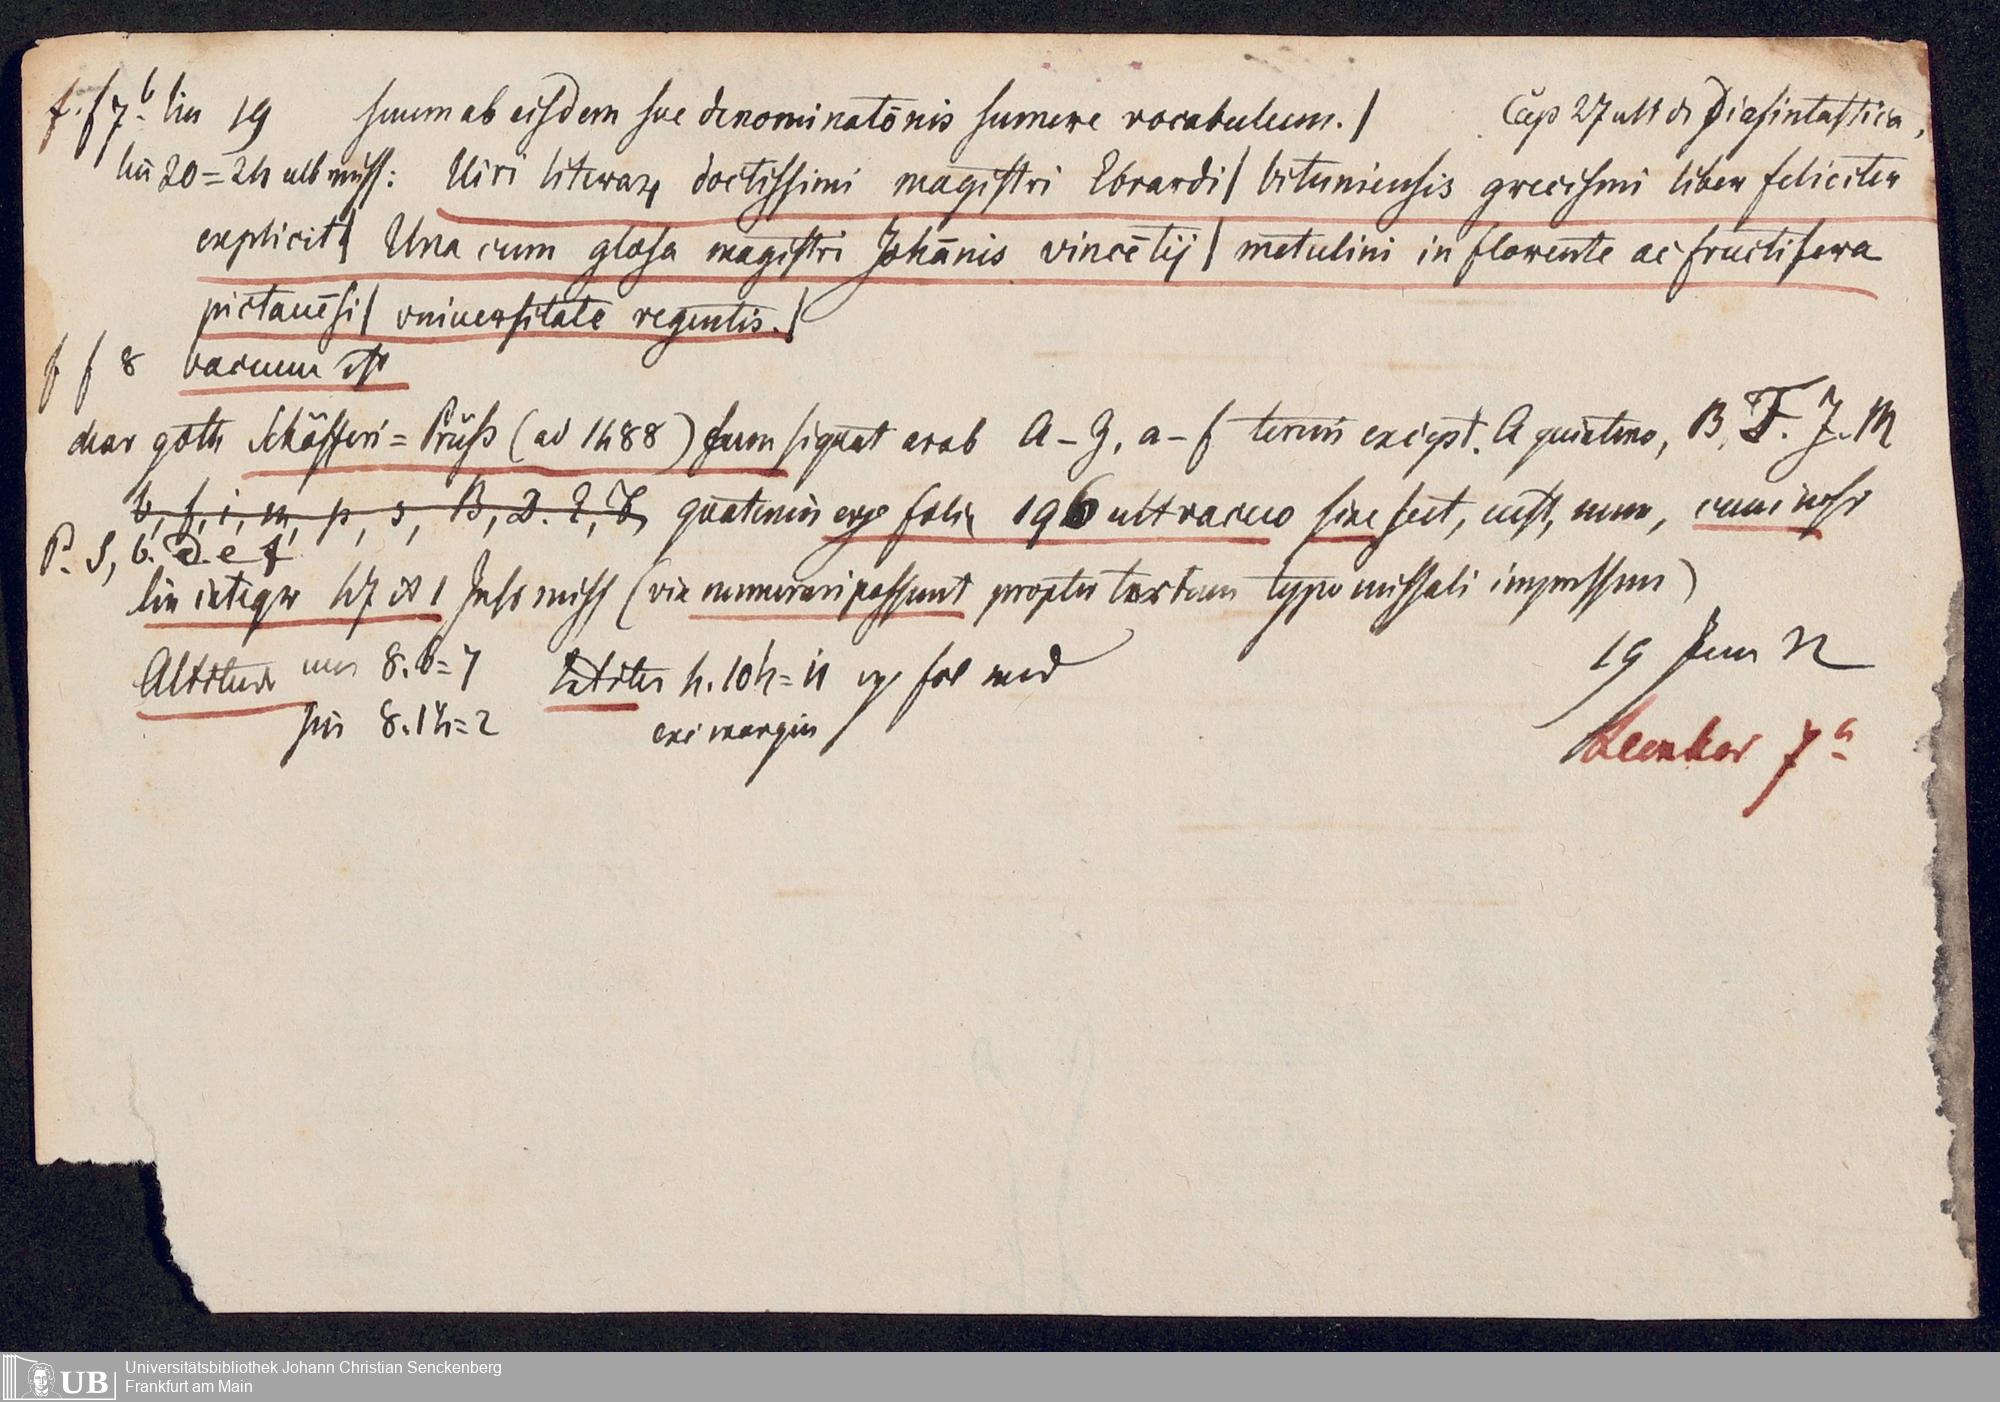 f. f 7.b lin 19 suum ab eisdem sue denominatōnis sumere vocabulum. / Cap 27 ult de Diasintastica,
lin 20 = 24 ult miss: Uiri literarꝝ doctissimi magistri Ebrardi / bituniensis grecismi liber feliciter
explicit / Una cum glosa magistri Johānis vincētij / metulini in florente ac fructifera
pictauēsi / vniuersitate regentis. /
f f 8 vacuum est
char goth Schöfferi = Prüss (ad 1488) cum signat arab A – Z, a – f ternis except. A quinterno, B, F. J. M
b, f, i, m, p, s, B, D. E, F, quaternis ergo folia 196 ult vacuo sine cust, num, cum
P. S, b. d. e f
lin integr 47 et 1 miss (vix numerari possunt propter textum typo missali impressum)
Altitudo 8. 6 = 7 Latitud 4. 104 = 11 fol med
sin 8. 14 = 2 exc margin
19 Jun
7 a
Universitätsbibliothek Johann Christian Senckenberg
Frankfurt am Main
UB